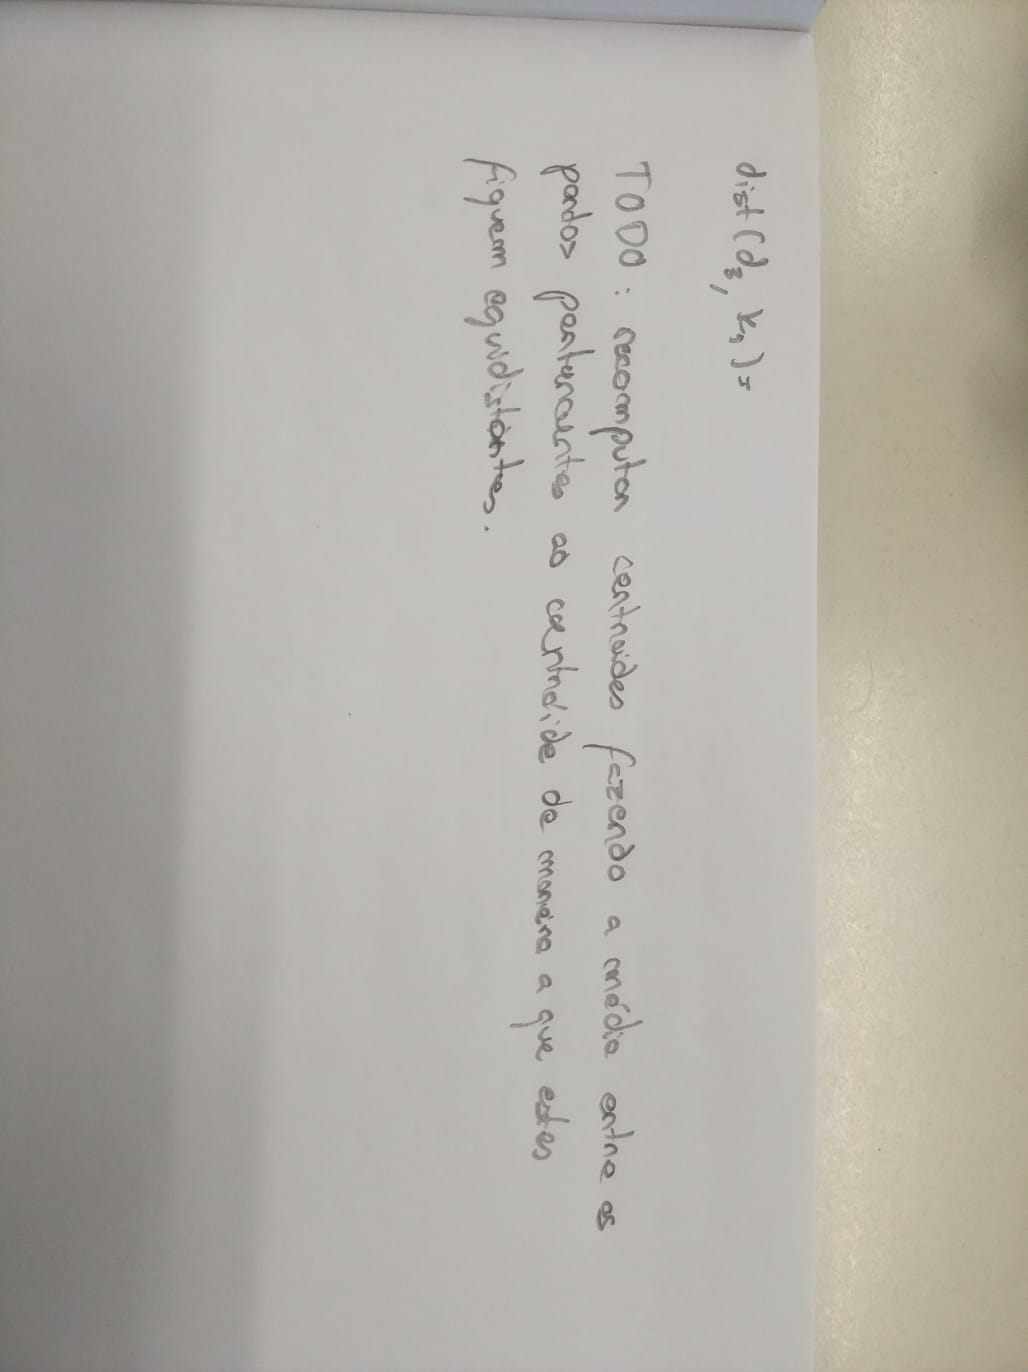 dist(d₃, k₁)=
TODO: recomputar centroides fazendo a média entre os
pontos pertencentes ao centroide de maneira a que estes
fiquem equidistantes.